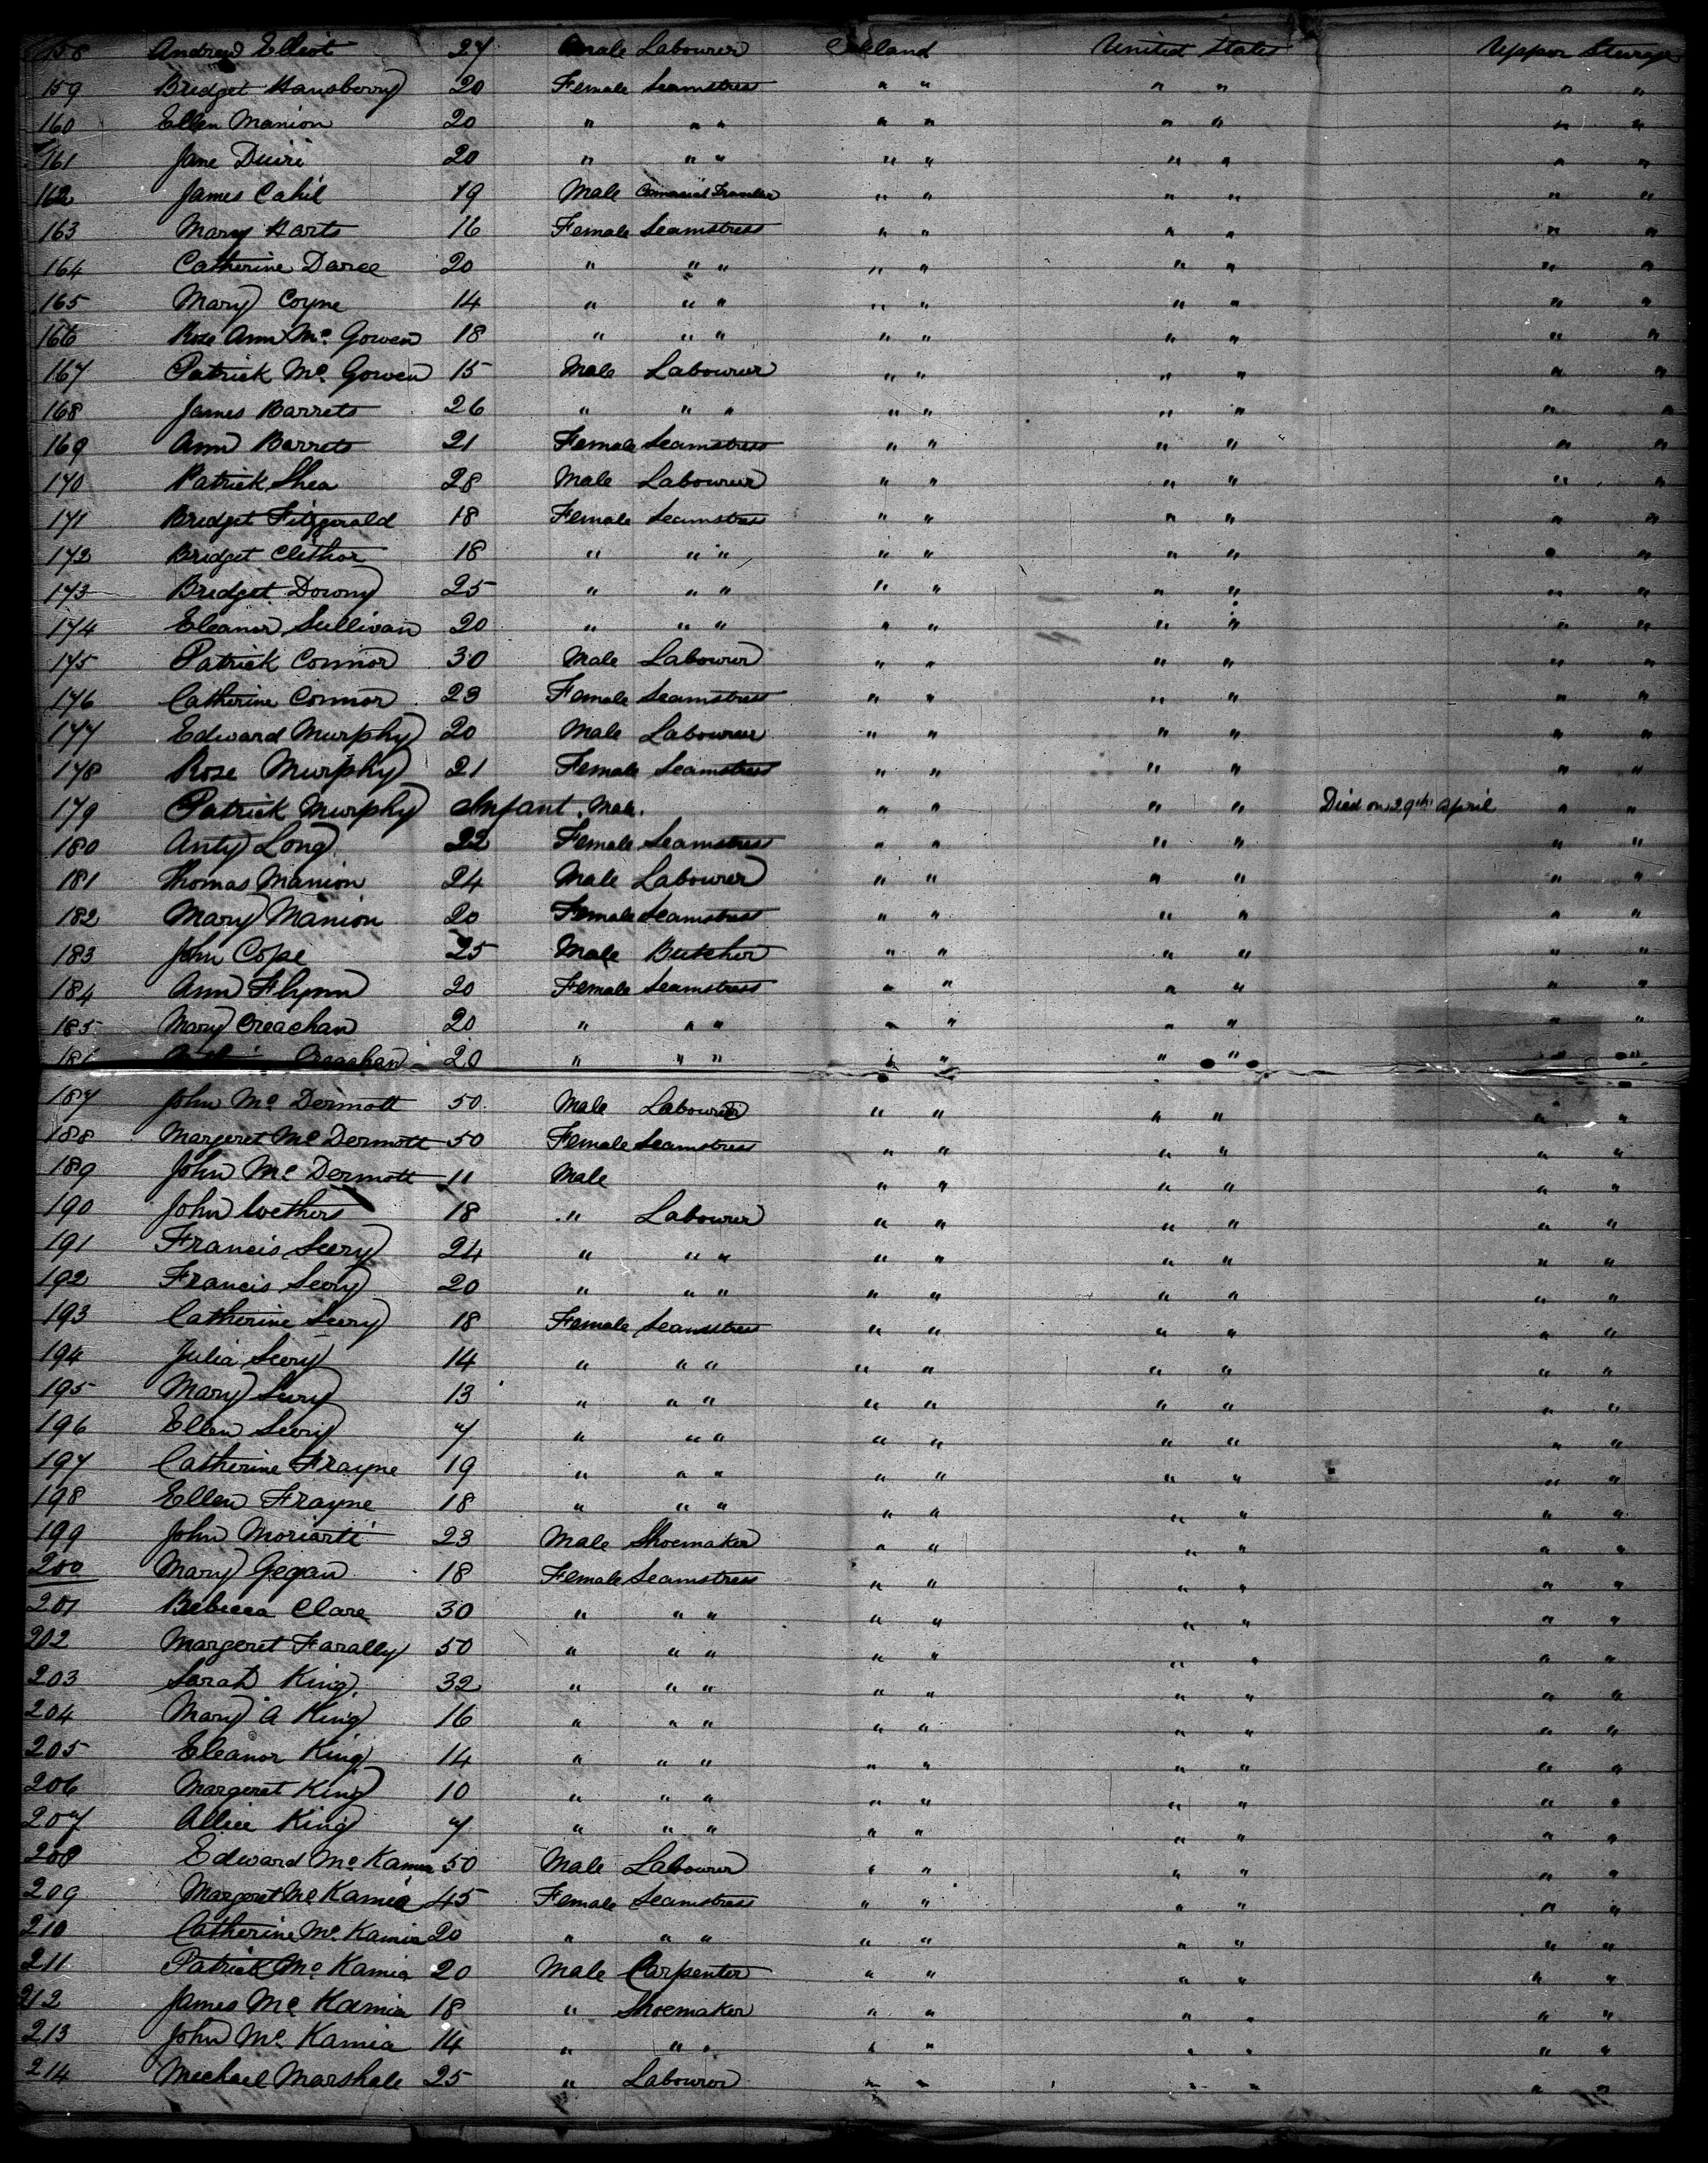 158 Andrew Elliot 27 Male Labourer Ireland United States Upper Steerage
159 Bridget Hansberry 20 Female Seamstress " " " " " "
160 Ellen Manion 20 " " " " " " " " "
161 Jane 20 " " " " " " " " "
162 James Cahil 19 Male " " " " " "
163 Mary Harts 16 Female Seamstress " " " " " "
164 Catherine Darce 20 " " " " " " " " "
165 Mary Coyne 14 " " " " " " " " "
166 Rose Ann Mc Gowen 18 " " " " " " " " "
167 Patrick Mc Gowen 15 Male Labourer " " " " " "
168 James Barrets 26 " " " " " " " " "
169 Ann Barrets 21 Female Seamstress " " " " " "
170 Patrick Shea 28 Male Labourer " " " " " "
171 Bridget Fitzgerald 18 Female Seamstress " " " " " "
172 Bridget Clithor 18 " " " " " " " " "
173 Bridget Downy 25 " " " " " " " " "
174 Eleanor Sullivan 20 " " " " " " " " "
175 Patrick Connor 30 Male Labourer " " " " " "
176 Catherine Connor 23 Female Seamstress " " " " " "
177 Edward Murphy 20 Male Labourer " " " " " "
178 Rose Murphy 21 Female Seamstress " " " " " "
179 Patrick Murphy Infant Male. " " " " Died on 29th April " "
180 Anty Long 22 Female Seamstress " " " " " "
181 Thomas Manion 24 Male Labourer " " " " " "
182 Mary Manion 20 Female Seamstress " " " " " "
183 John Cope 25 Male Butcher " " " " " "
184 Ann Flynn 20 Female Seamstress " " " " " "
185 Mary Creachan 20 " " " " " " " " "
186 Creachan 20 " " " " " " " " "
187 John Mc Dermott 50 Male Labourer " " " " " "
188 Margeret Mc Dermott 50 Female Seamstress " " " " " "
189 John Mc Dermott 11 Male " " " " " "
190 John Wethers 18 " Labourer " " " " " "
191 Francis Seery 24 " " " " " " " " "
192 Francis Seery 20 " " " " " " " " "
193 Catherine Seery 18 Female Seamstress " " " " " "
194 Julia Seery 14 " " " " " " " " "
195 Mary Seery 13 " " " " " " " " "
196 Ellen Seery 7 " " " " " " " " "
197 Catherine Frayne 19 " " " " " " " " "
198 Ellen Frayne 18 " " " " " " " " "
199 John Moriarti 23 Male Shoemaker " " " " " "
200 Mary Gegan 18 Female Seamstress " " " " " "
201 Rebecca Clare 30 " " " " " " " " "
202 Margeret Farally 50 " " " " " " " " "
203 Sarah King 32 " " " " " " " " "
204 Mary A King 16 " " " " " " " " "
205 Eleanor King 14 " " " " " " " " "
206 Margeret King 10 " " " " " " " " "
207 Allice King 7 " " " " " " " " "
208 Edward Mc Kamia 50 Male Labourer " " " " " "
209 Margeret Mc Kamia 45 Female Seamstress " " " " " "
210 Catherine Mc Kamia 20 " " " " " " " " "
211 Patrick Mc Kamia 20 Male Carpenter " " " " " "
212 James Mc Kamia 18 " Shoemaker " " " " " "
213 John Mc Kamia 14 " " " " " " " " "
214 Michael Marshale 25 " Labourer " " " " " "